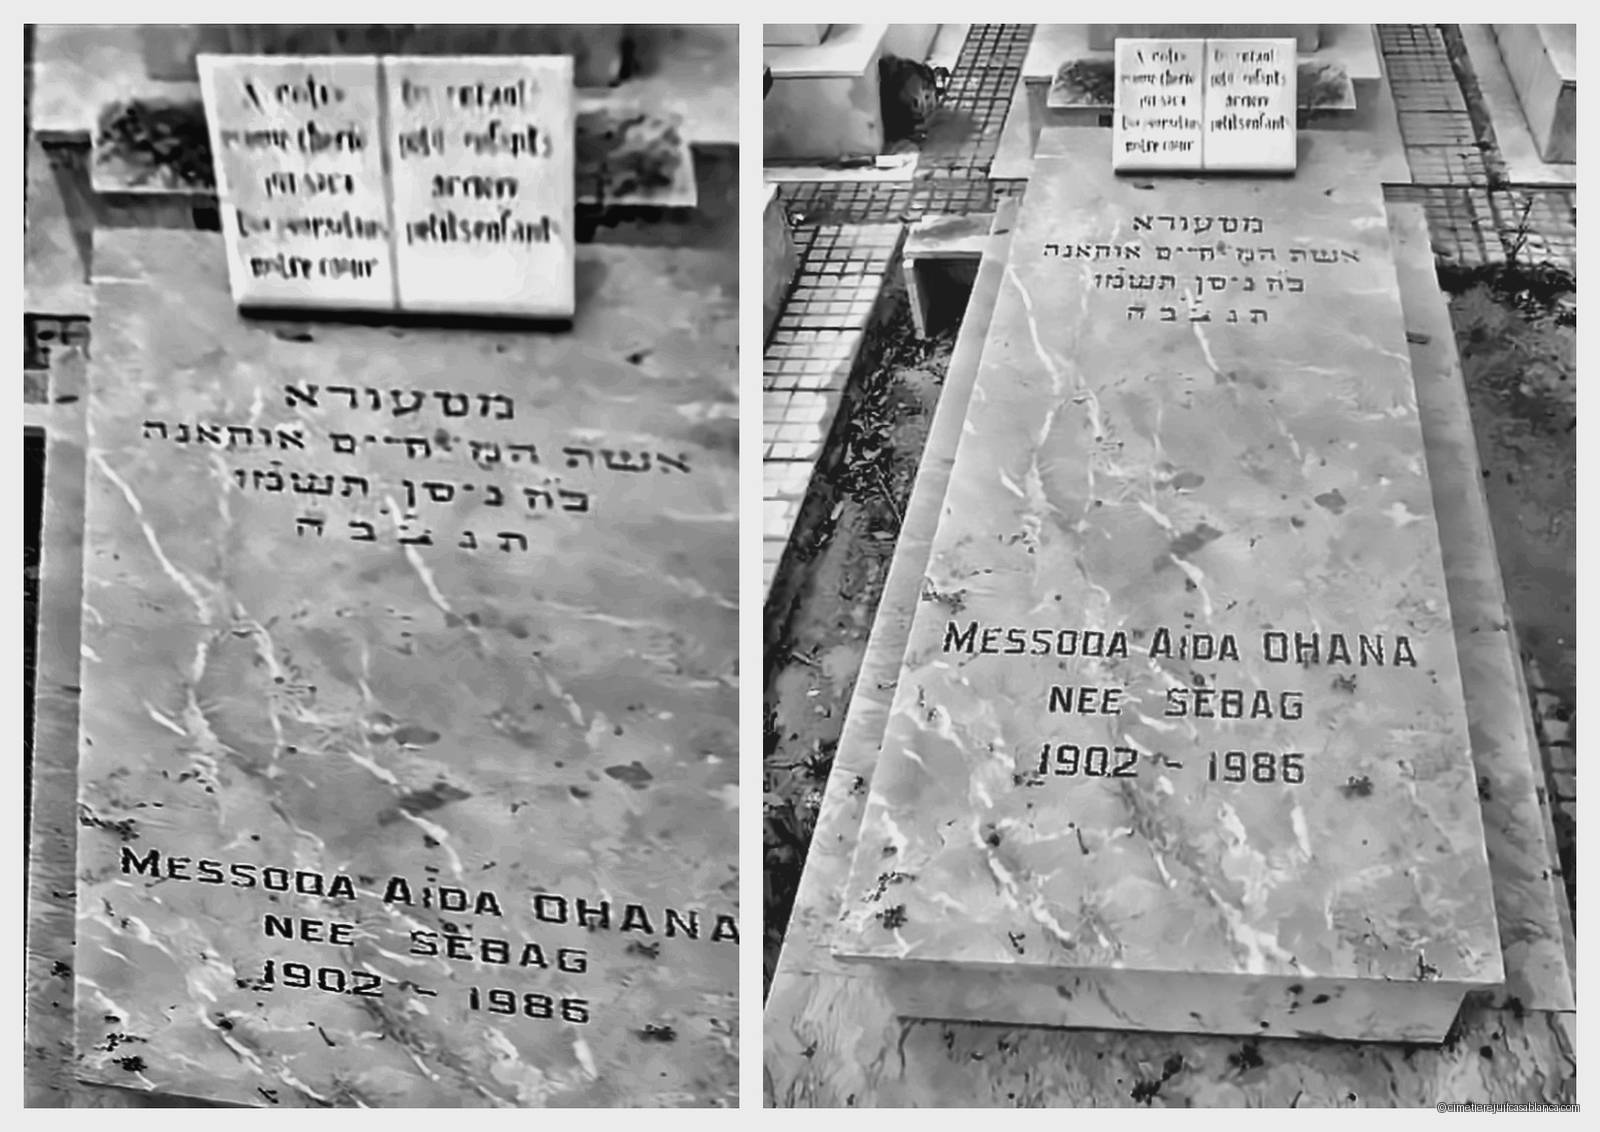 A notre
mere cherie
tu vivras
notre cœur
Les enfants
petits enfants
arriere
petits enfants
מסעודא
אשת המ׳ חיים אוחאנה
כ״ה ניסן תשמ״ו
ת נ צ ב ה
MESSODA AïDA OHANA
NEE SEBAG
1902 ~ 1986
A notre
mere cherie
notre cœur
Les enfants
petits enfants
arriere
petits enfants
מסעודא
אשת המ׳ חיים אוחאנה
כ״ה ניסן תשמ״ו
ת נ צ ב ה
MESSODA AïDA OHANA
NEE SEBAG
1902 ~ 1986
©cimetierejuifcasablanca.com